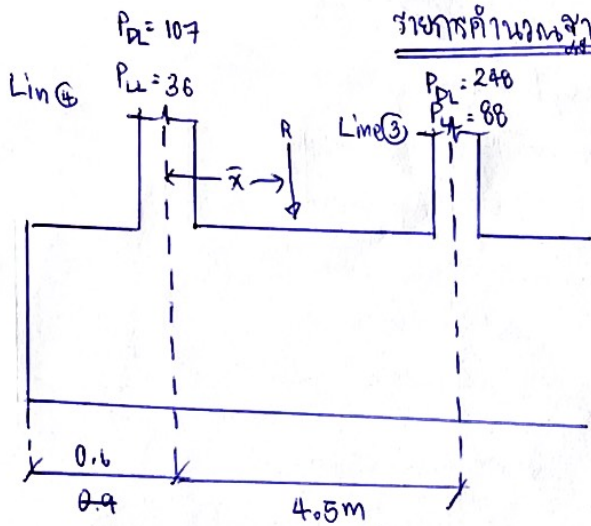 P_DL = 107
รายการคำนวณ
Lin ④
P_LL = 36
P_DL = 248
Line ③
P_LL = 88
R
x̄
0.6
0.9
4.5m